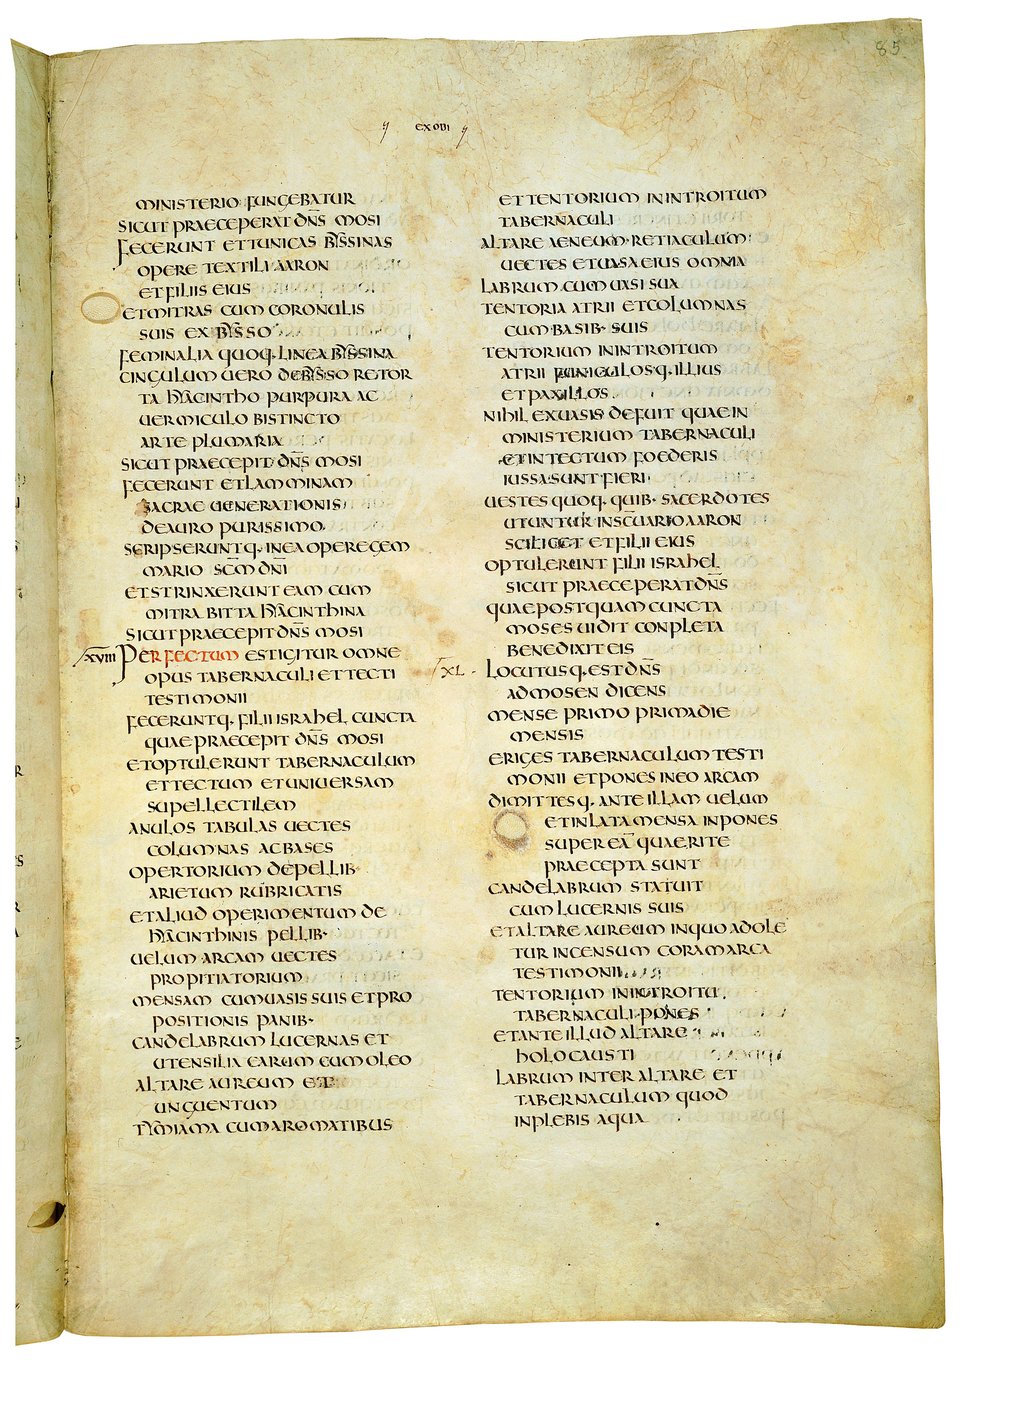 85
EXODI
MINISTERIO FUNGEBATUR
SICUT PRAECEPERAT DN̄S MOSI
FECERUNT ET TUNICAS BYSSINAS
OPERE TEXTILI AARON
ET FILIIS EIUS
ET MITRAS CUM CORONULIS
SUIS EX BYSSO
FEMINALIA QUOQ· LINEA BYSSINA
CINGULUM UERO DE BYSSO RETOR
TA HYACINTHO PURPURA AC
UERMICULO BISTINCTO
ARTE PLUMARIA
SICUT PRAECEPIT DN̄S MOSI
FECERUNT ET LAMMINAM
SACRAE UENERATIONIS
DE AURO PURISSIMO
SCRIPSERUNTQ· IN EA OPERE GEM
MARIO SC̄M DN̄I
ET STRINXERUNT EAM CUM
MITRA BITTA HYACINTHINA
SICUT PRAECEPIT DN̄S MOSI
XVIII PERFECTUM EST IGITUR OMNE
OPUS TABERNACULI ET TECTI
TESTIMONII
FECERUNTQ· FILII ISRAHEL CUNCTA
QUAE PRAECEPIT DN̄S MOSI
ET OPTULERUNT TABERNACULUM
ET TECTUM ET UNIUERSAM
SUPELLECTILEM
ANULOS TABULAS UECTES
COLUMNAS AC BASES
OPERTORIUM DE PELLIB·
ARIETUM RUBRICATIS
ET ALIUD OPERIMENTUM DE
HYACINTHINIS PELLIB·
UELUM ARCAM UECTES
PROPITIATORIUM
MENSAM CUM UASIS SUIS ET PRO
POSITIONIS PANIB·
CANDELABRUM LUCERNAS ET
UTENSILIA EARUM CUM OLEO
ALTARE AUREUM ET
UNGUENTUM
TYMIAMA CUM AROMATIBUS
ET TENTORIUM IN INTROITUM
TABERNACULI
ALTARE AENEUM RETIACULUM
UECTES ET UASA EIUS OMNIA
LABRUM CUM UASI SUA
TENTORIA ATRII ET COLUMNAS
CUM BASIB· SUIS
TENTORIUM IN INTROITUM
ATRII FUNICULOSQ· ILLIUS
ET PAXILLOS
NIHIL EX UASIS DEFUIT QUAE IN
MINISTERIUM TABERNACULI
ET IN TECTUM FOEDERIS
IUSSA SUNT FIERI
UESTES QUOQ· QUIB· SACERDOTES
UTUNTUR IN SC̄UARIO AARON
SCILICET ET FILII EIUS
OPTULERUNT FILII ISRAHEL
SICUT PRAECEPERAT DN̄S
QUAE POSTQUAM CUNCTA
MOSES UIDIT CONPLETA
BENEDIXIT EIS
XL LOCUTUSQ· EST DN̄S
AD MOSEN DICENS
MENSE PRIMO PRIMA DIE
MENSIS
ERIGES TABERNACULUM TESTI
MONII ET PONES IN EO ARCAM
DIMITTESQ· ANTE ILLAM UELUM
ET INLATA MENSA INPONES
SUPER EĀ QUAE RITE
PRAECEPTA SUNT
CANDELABRUM STATUIT
CUM LUCERNIS SUIS
ET ALTARE AUREUM IN QUO ADOLE
TUR INCENSUM CORAM ARCA
TESTIMONII
TENTORIUM IN INTROITU
TABERNACULI PONES
ET ANTE ILLUD ALTARE
HOLOCAUSTI
LABRUM INTER ALTARE ET
TABERNACULUM QUOD
INPLEBIS AQUA